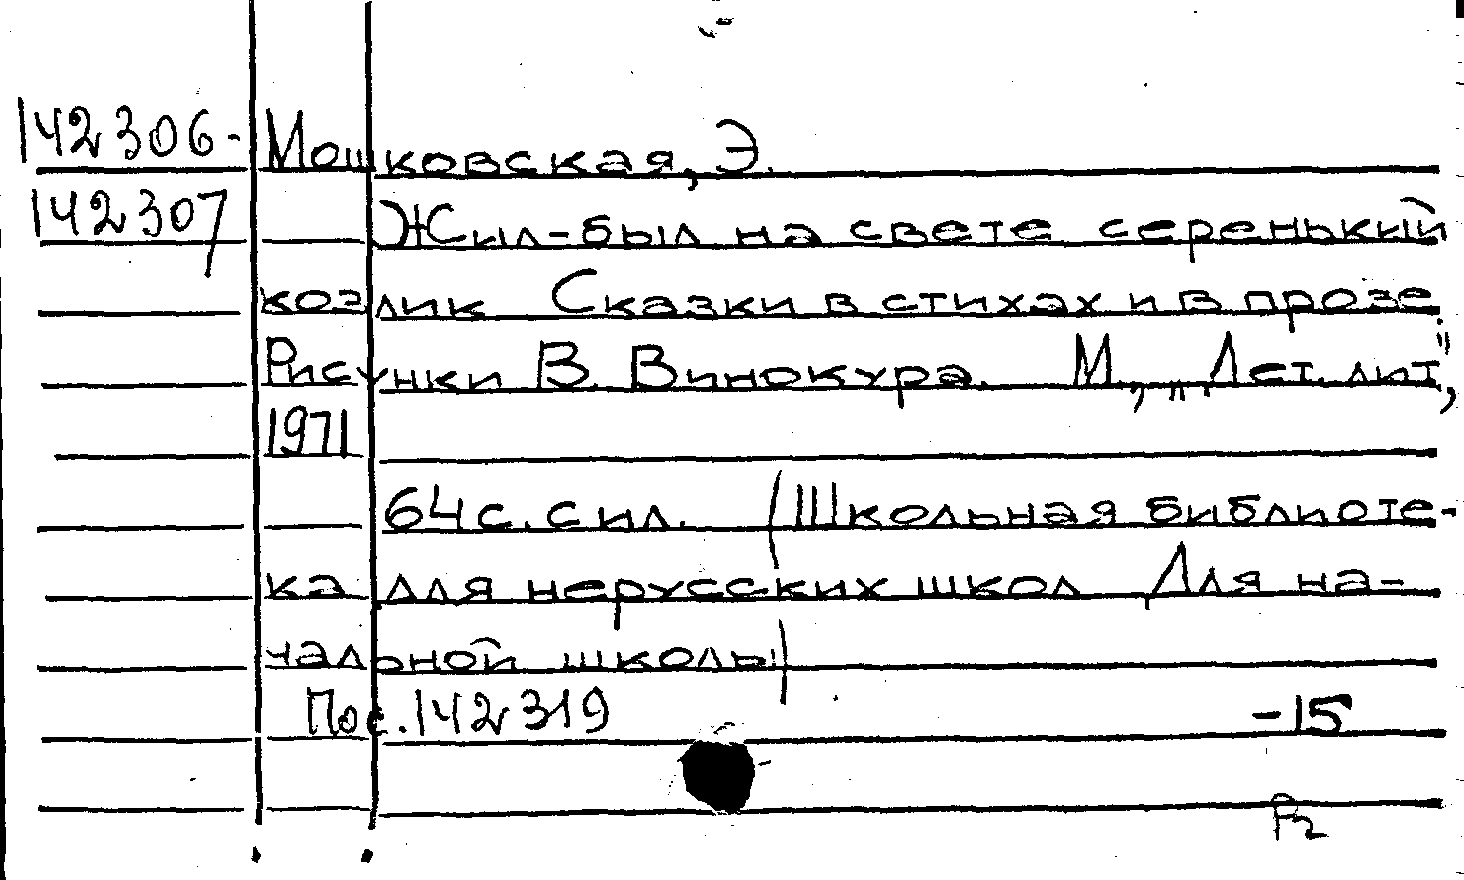 142306- Мошковская, Э.
142307 Жил-был на свете серенький
козлик Сказки в стихах и в прозе
Рисунки В. Винокура. М., „Дет. лит",
1971
64 с. с ил. (Школьная библиоте-
ка для нерусских школ Для на-
чальной школы)
Пос. 142319 -15
P2